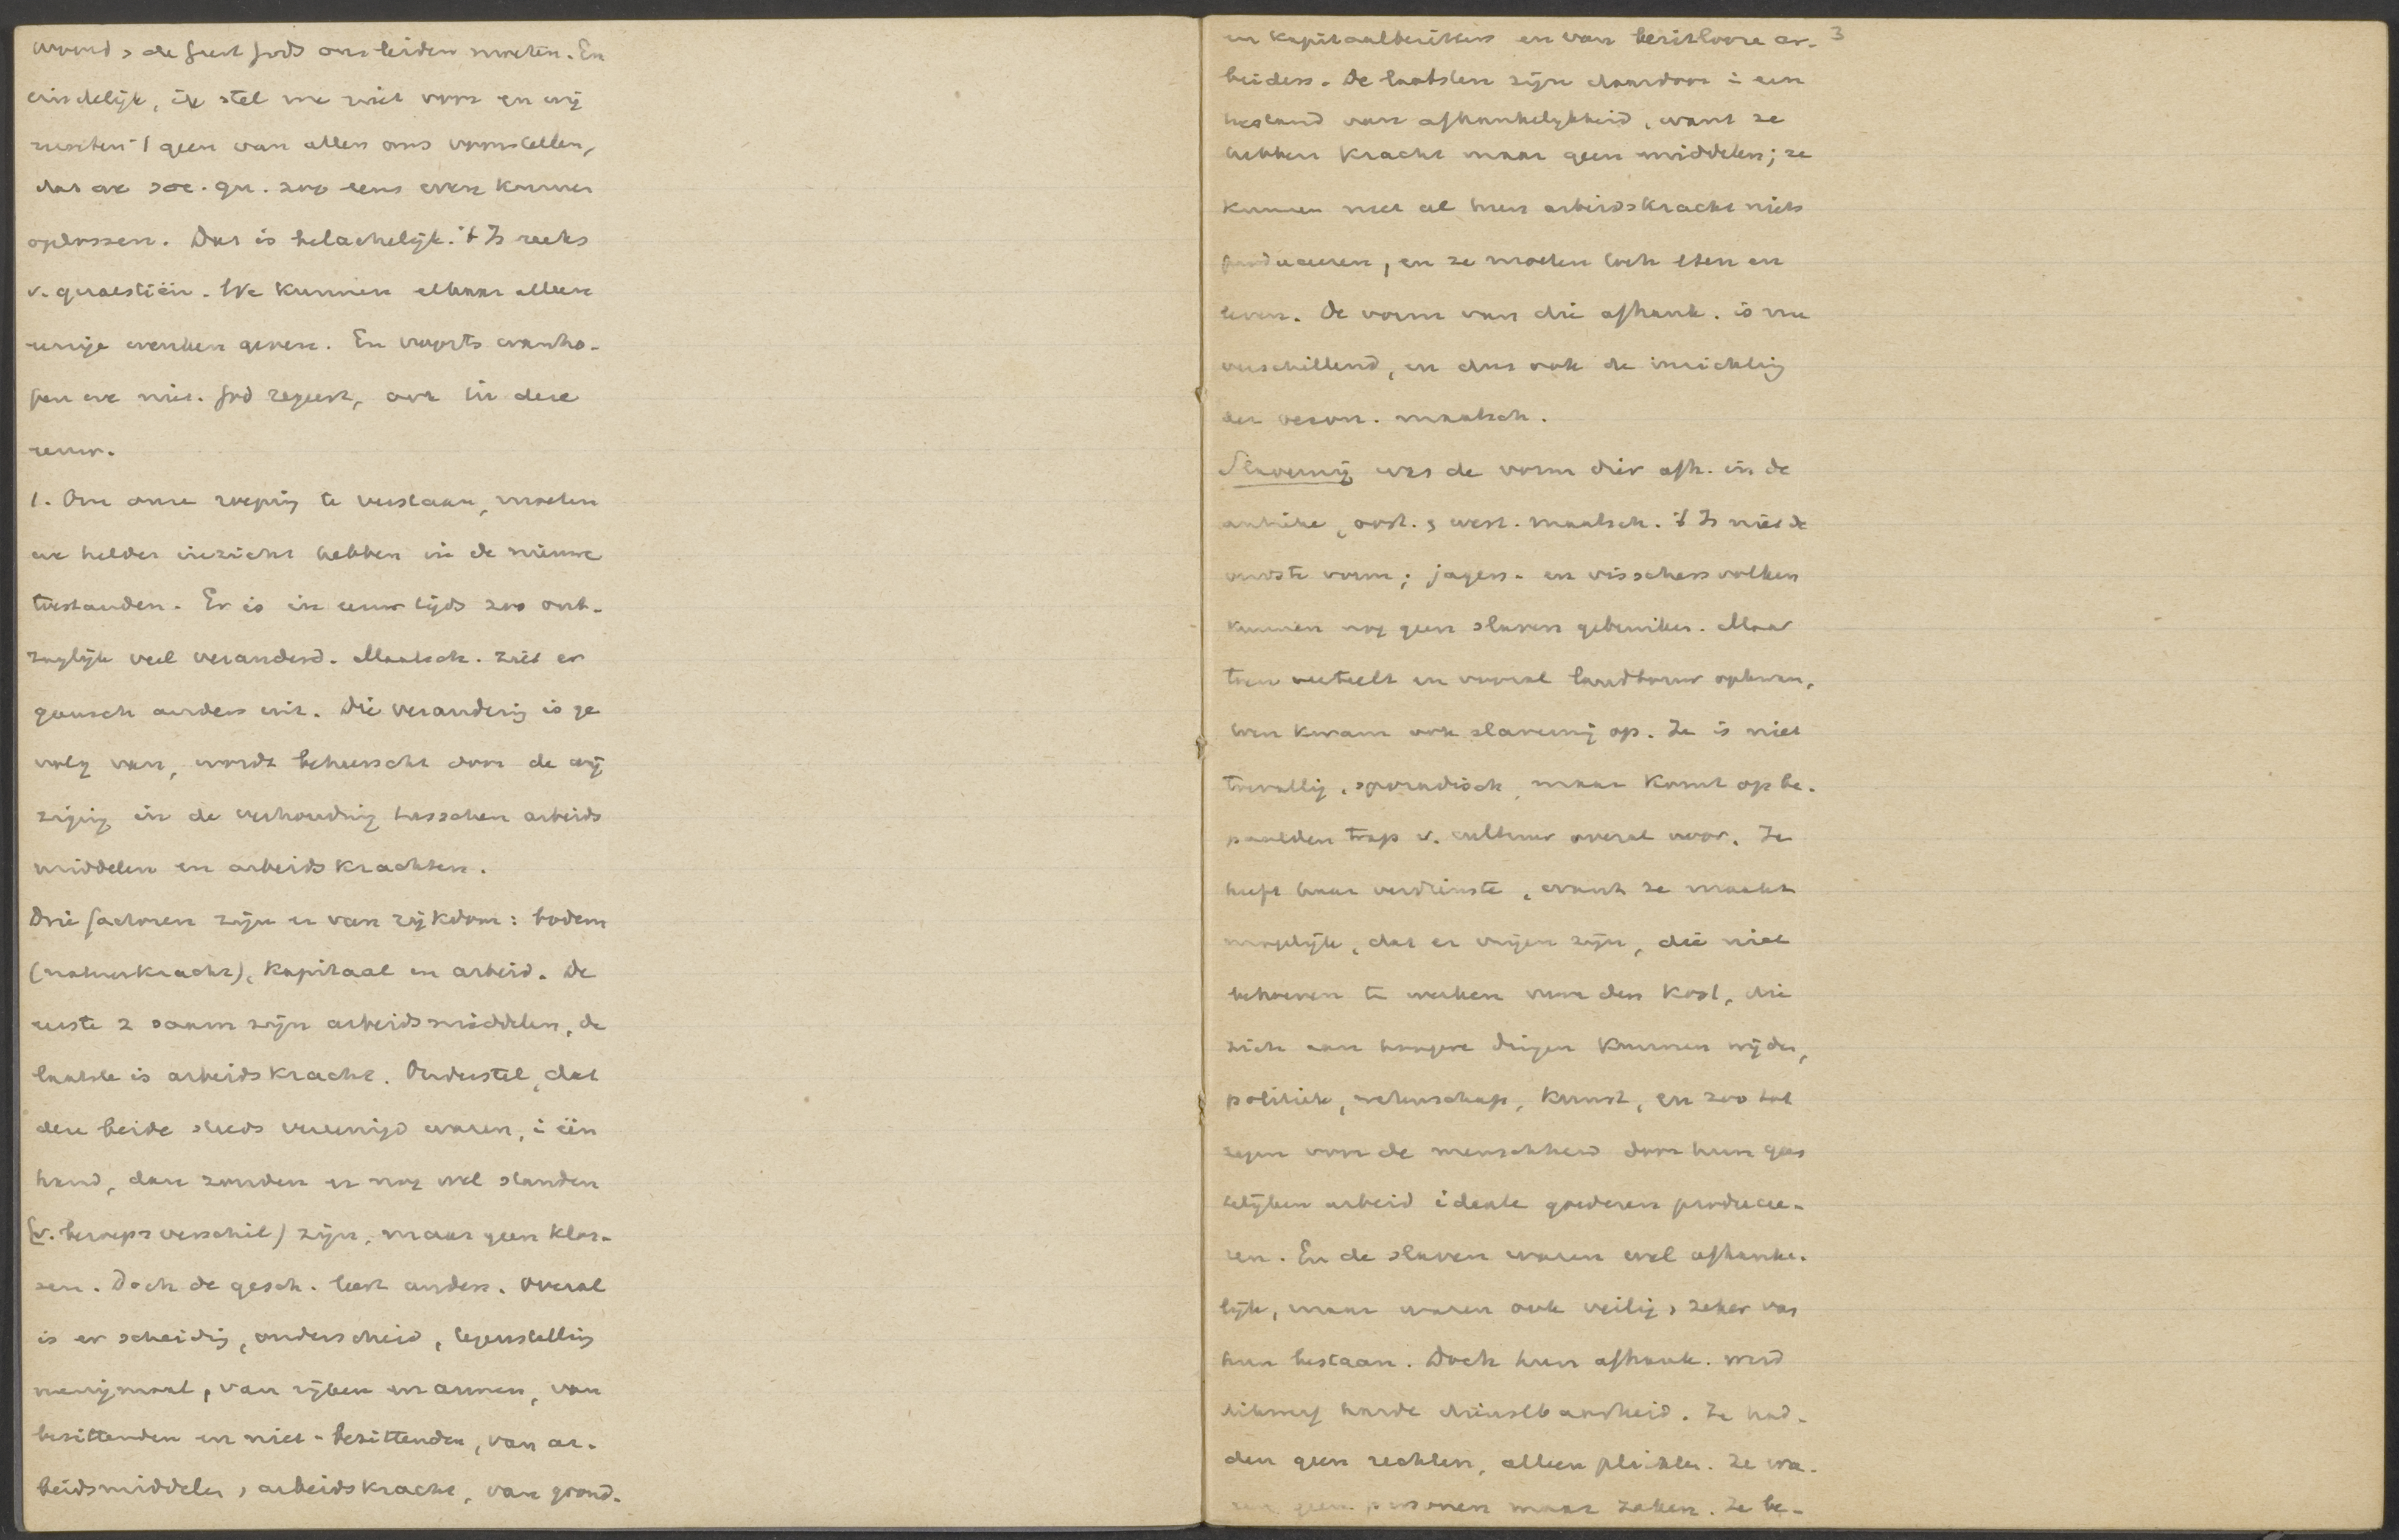 woord, de geest Gods ons leiden moeten. En
eindelijk, ik stel me niet voor en wij
moeten 't geen van allen ons voorstellen,
dat we soc. qu. zoo eens even kunnen
oplossen. Dat is belachelijk. 't Is reeks
v. quaestiën. We kunnen elkaar alleen
eenige wenken geven. En voorts wanho-
pen we niet. God regeert, ook in deze
eeuw.
1. Om onze roeping te verstaan, moeten
we helder inzicht hebben in de nieuwe
toestanden. Er is in eeuw tijds zoo ont-
zaglijk veel veranderd. Maatsch. ziet er
gansch anders uit. Die verandering is ge
volg van, wordt beheerscht door de wij
ziging in de verhouding tusschen arbeids
middelen en arbeidskrachten.
Drie factoren zijn er van rijkdom: bodem
(natuurkracht), kapitaal en arbeid. De
eerste 2 saam zijn arbeidsmiddelen, de
laatste is arbeidskracht. Onderstel, dat
deze beide steeds vereenigd waren, i één
hand, dan zouden er nog wel standen
(v. beroepsverschil) zijn, maar geen klas-
sen. Doch de gesch. leert anders. Overal
is er scheidig, onderscheid, tegenstelling
menigmaal, van rijken en armen, van
bezittenden en niet-bezittenden, van ar-
beidsmiddelen , arbeidskracht, van grond-
en kapitaalbezitters en van bezitlooze ar- 3
beiders. De laatsten zijn daardoor i een
toestand van afhankelijkheid, want ze
hebben kracht maar geen middelen; ze
kunnen met al hun arbeidskracht niets
produceeren, en ze moeten toch eten en
leven. De vorm van die afhank. is nu
verschillend, en dus ook de inrichting
der maatsch.
Slavernij was de vorm dier afh. in de
antieke, oost. , west. maatsch. 't Is niet de
oudste vorm; jagers- en visschersvolken
kunnen nog geen slaven gebruiken. Maar
toen veeteelt en vooral landbouw opkwam,
toen kwam ook slavernij op. Ze is niet
toevallig, sporadisch, maar komt op be-
paalden trap v. cultuur overal voor. Ze
heeft haar verdienste, want ze maakt
mogelijk, dat er vrijen zijn, die niet
behoeven te werken voor den kost, die
zich aan hoogere dingen kunnen wijden,
politiek, wetenschap, kunst, en zoo tot
zegen voor de menschheid door hun gees
telijken arbeid ideale goederen producee-
ren. En de slaven waren wel afhanke-
lijk, maar waren ook veilig, zeker van
hun bestaan. Doch hun afhank. werd
dikwerf harde dienstbaarheid. Ze had-
den geen rechten, alleen plichten. Ze wa-
ren geen personen maar zaken. Ze be-